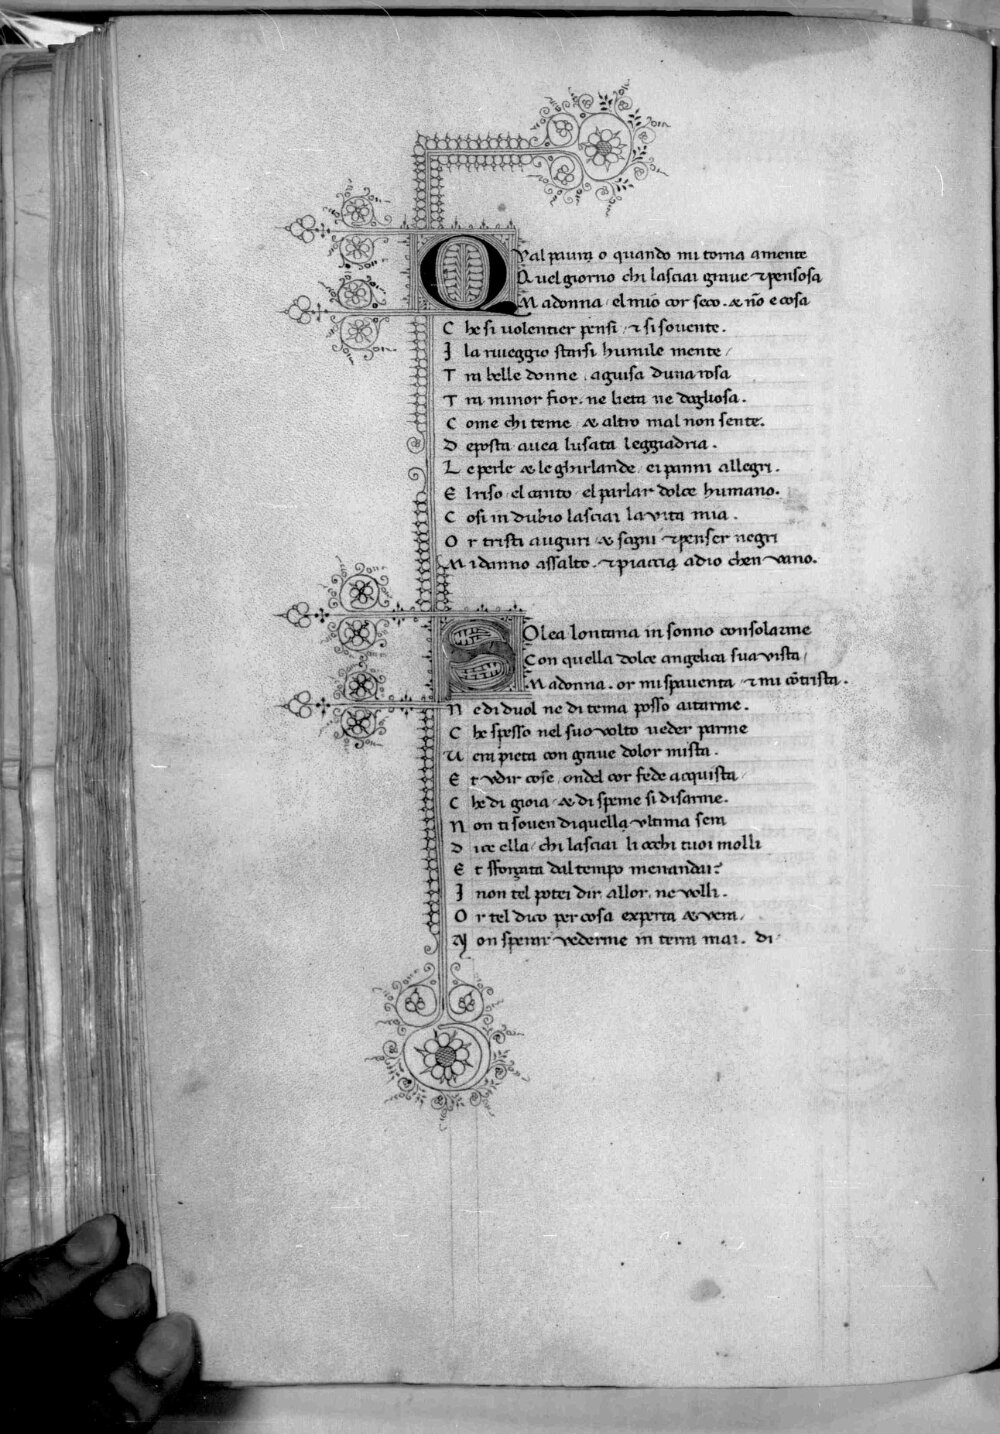 Qual paura o quando mi torna a mente
Quel giorno chi lasciai graue ⁊ pensosa
Madonna / el mio cor seco. & nō e cosa
Che si uolentier pensi / ⁊ si souente.
I la riueggio starsi humile mente /
Tra belle donne / aguisa duna rosa
Tra minor fior. ne lieta ne dogliosa.
Come chi teme / & altro mal non sente.
Deposta auea lusata leggiadria.
Le perle & le ghirlande / ei panni allegri.
El riso / el canto / el parlar dolce humano.
Cosi in dubio lasciai la vita mia.
Or tristi auguri & sogni ⁊ penser negri
Mi danno assalto. ⁊ piaccia adio chen vano.
Solea lontana in sonno consolarme
Con quella dolce angelica sua vista /
Madonna. or mi spauenta / ⁊ mi cōtrista.
Ne di duol ne di tema posso aitarme.
Che spesso nel suo volto ueder parme
Uera pieta con graue dolor mista.
Et vdir cose / ondel cor fede acquista /
Che di gioia / & di speme si disarme.
Non ti souen di quella vltima sera
Dice ella / chi lasciai li occhi tuoi molli
Et sforzata dal tempo menandai?
I non tel potei dir allor. ne volli.
Or tel dico per cosa experta & vera /
Non sperar vederme in terra mai. di